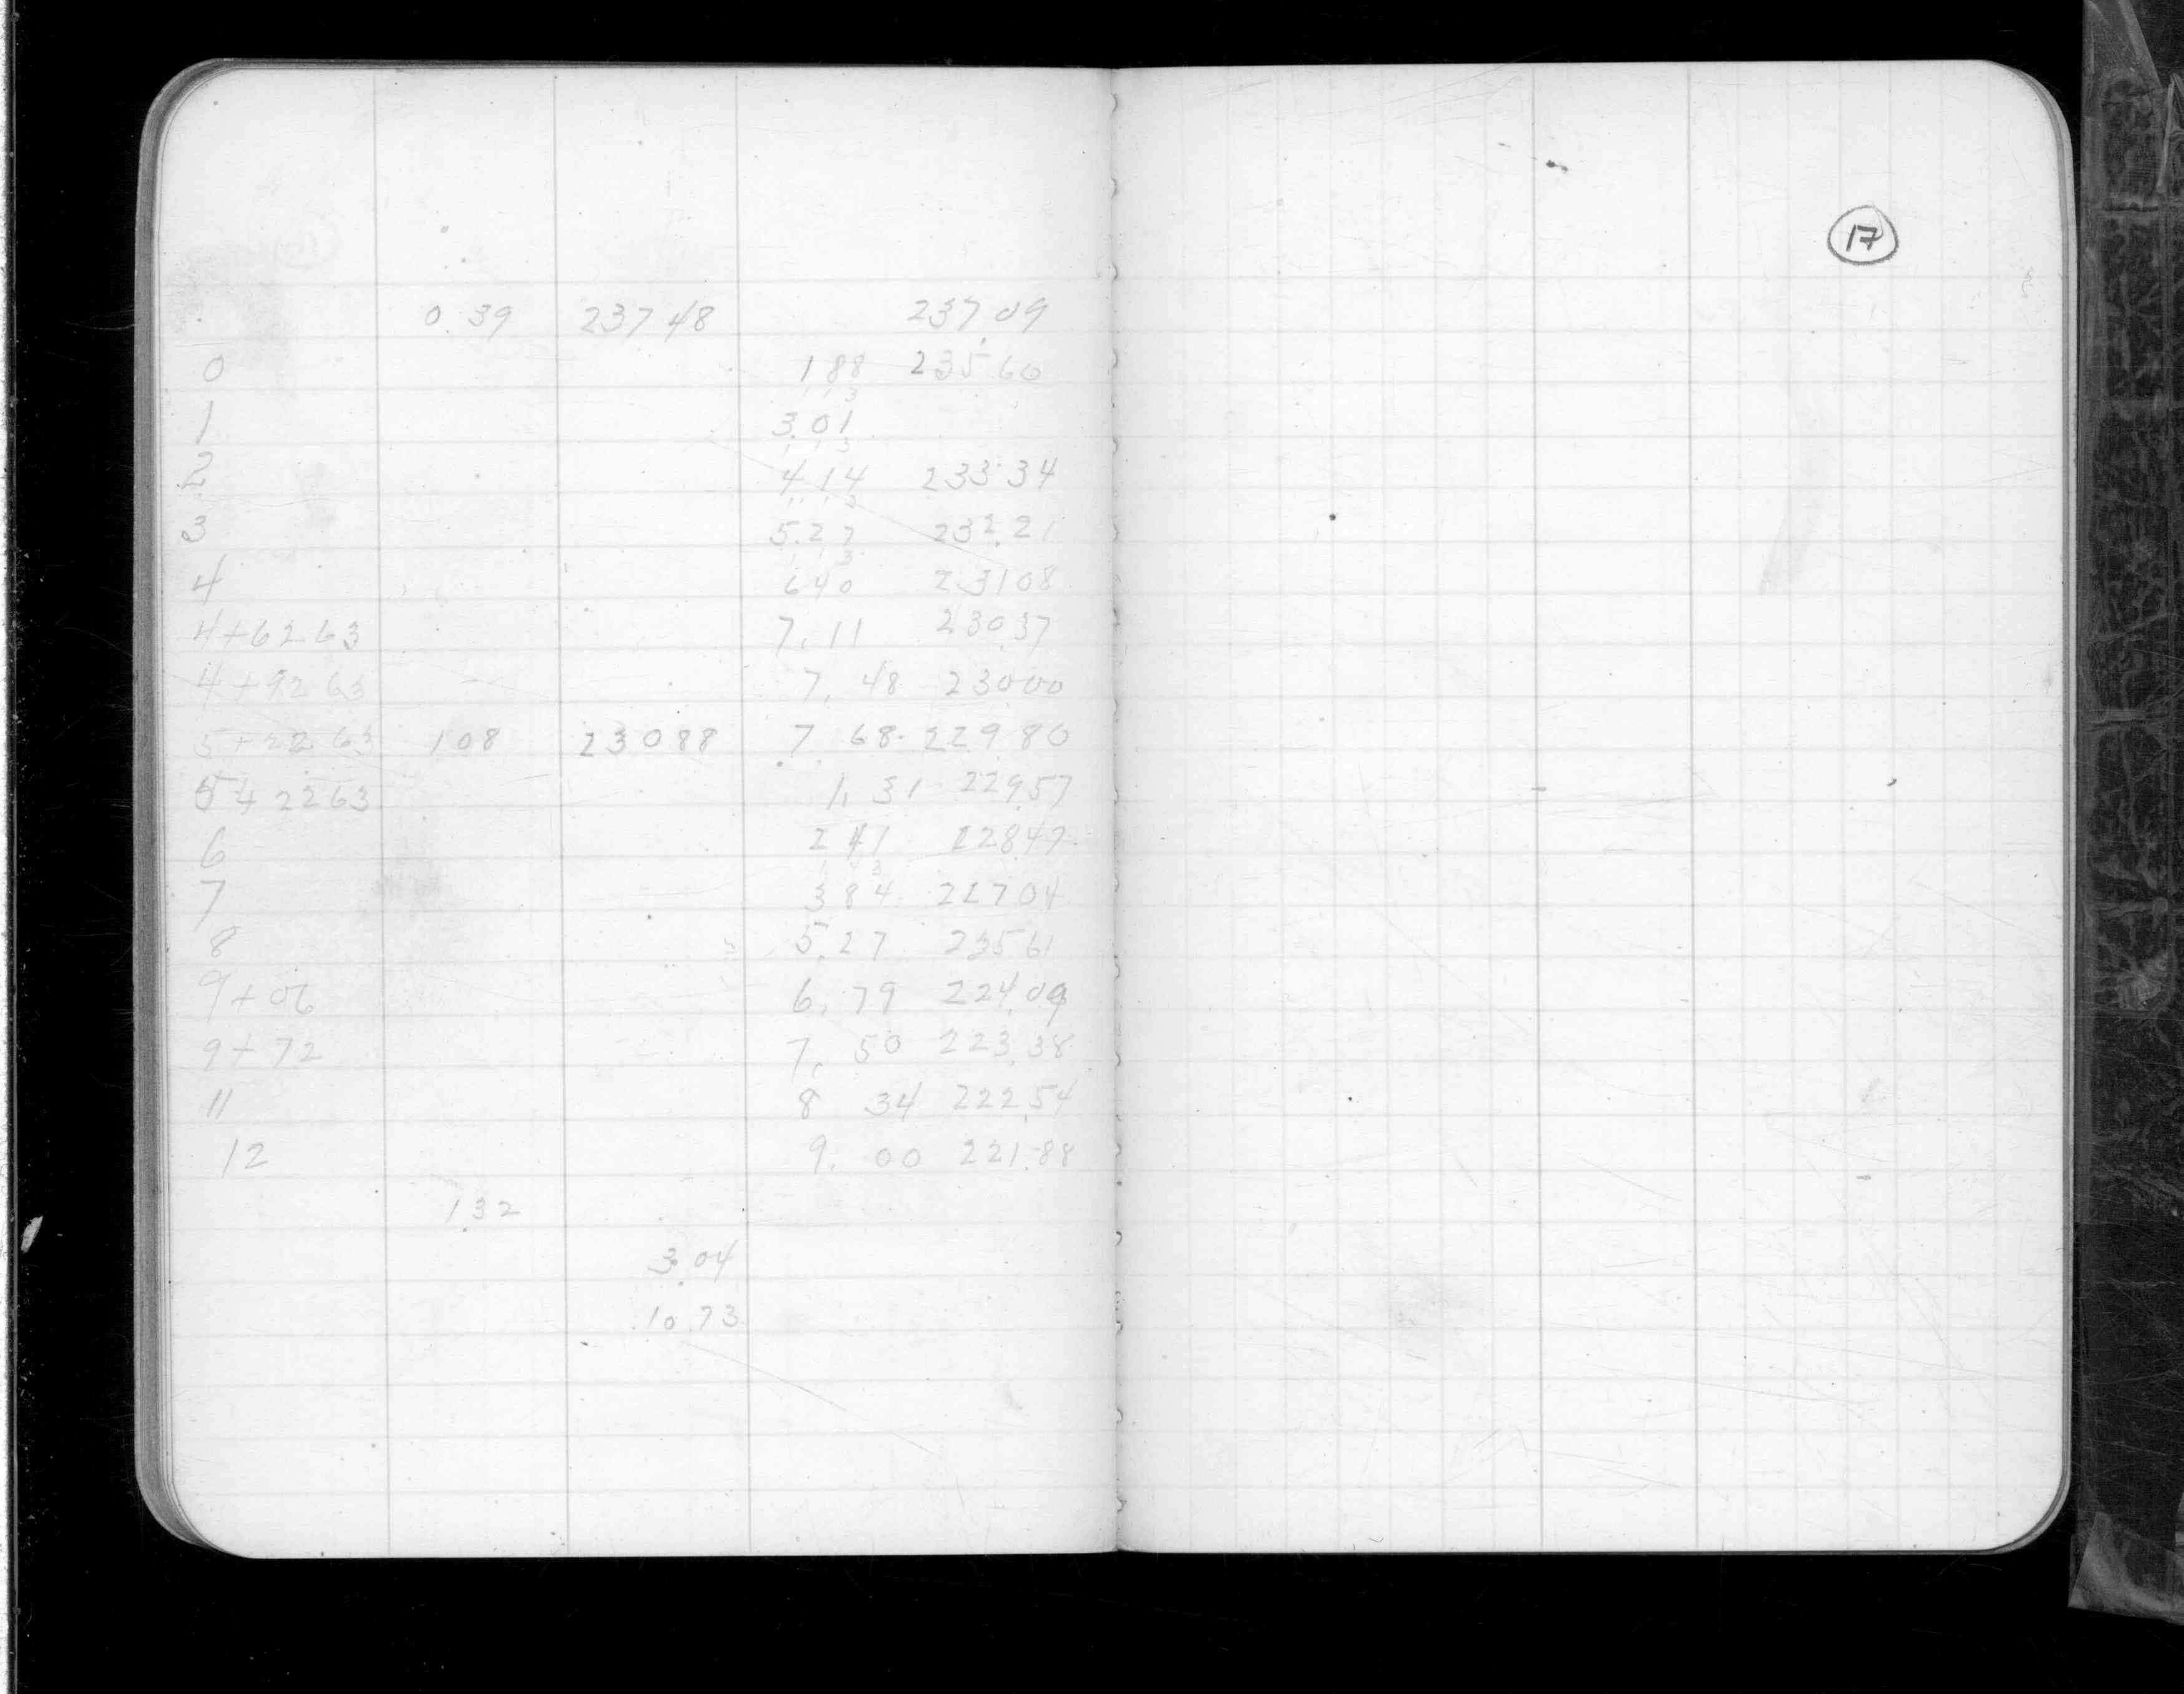 0.39 237 48 237 09
0 188 235 60
113
1 3.01
113
2 4 14 233 34
113
3 5.27 232.21
113
4 6 40 231 08
4+62.63 7.11 230.37
4+92 63 7.48 230.00
5+22 63 108 230 88 7 68 229 80
5+42263 1.31 229.57
6 2 41 228.47
7 3 84 227 04
8 5.27 235 61
9+06 6.79 224.09
9+72 7.50 223.38
11 8 34 222.54
12 9.00 221.88
1.32
3.04
10.73
17